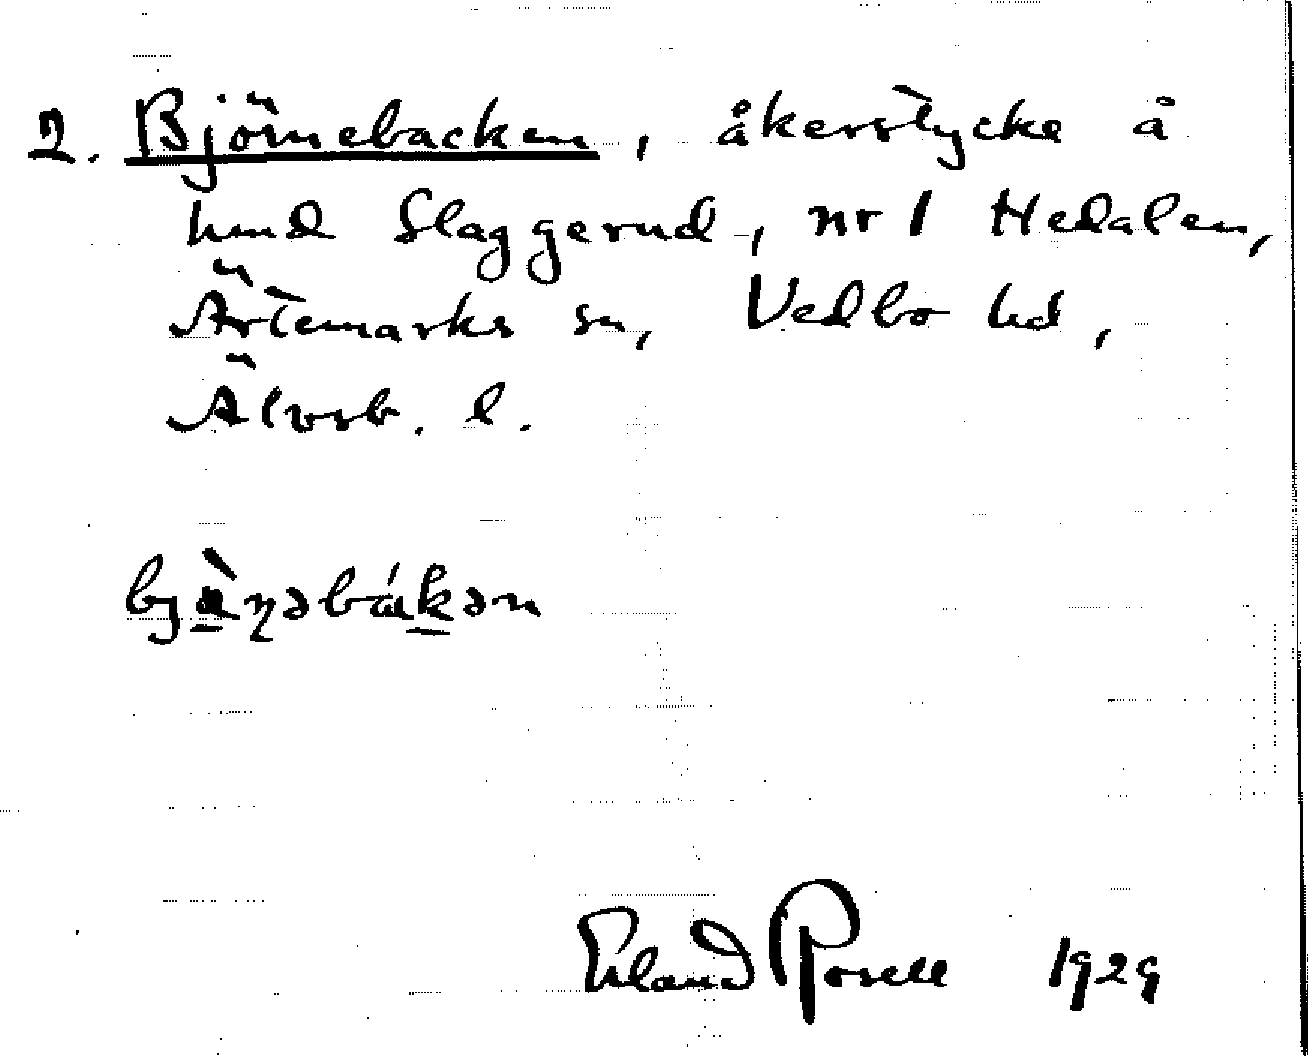 2. Björnebacken, åkerstycke å
hmd Slaggerud, nr 1 Hedalen,
Ärtemarks sn, Vedbo hd,
Älvsb. l.
Erland Rosell 1929